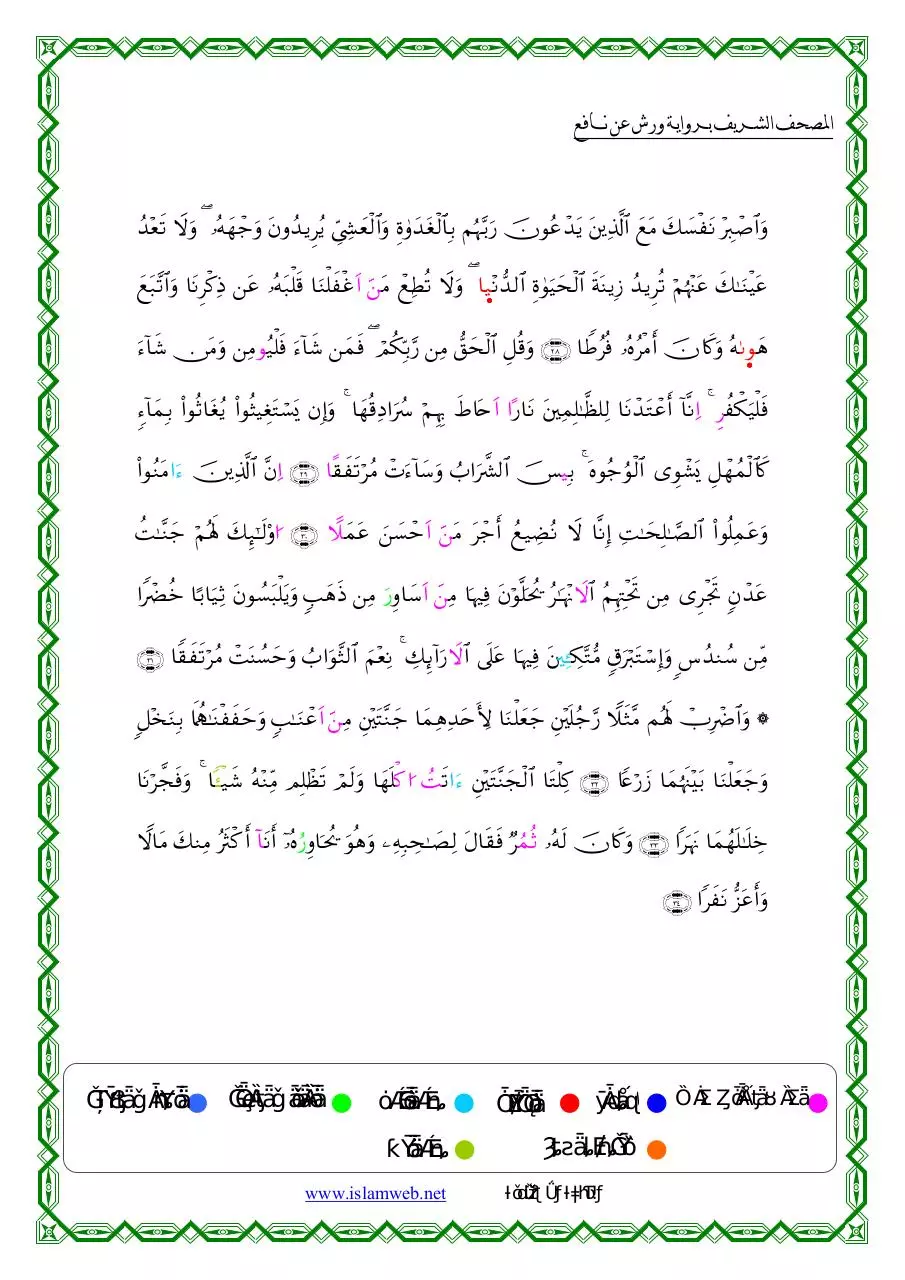 المصحف الشريف برواية ورش عن نافع
وَاَصْبِرْ نَفْسَكَ مَعَ اَ۬لذِينَ يَدْعُونَ رَبَّهُم بِالْغَدَوٰةِ وَالْعَشِيِّ يُرِيدُونَ وَجْهَهُۥ ۖ وَلَا تَعْدُ
عَيْنَٰكَ عَنْهُمْ تُرِيدُ زِينَةَ اَ۬لْحَيَوٰةِ اِ۬لدُّنْيا ۖ وَلَا تُطِعْ مَنَ اَغْفَلْنَا قَلْبَهُۥ عَن ذِكْرِنَا وَاتَّبَعَ
هَوىٰهُ وَكَانَ أَمْرُهُۥ فُرُطًا ٢٨ وَقُلِ اِ۬لْحَقُّ مِن رَّبِّكُمْ ۖ فَمَن شَآءَ فَلْيُومِن وَمَن شَآءَ
فَلْيَكْفُرِ ۚ اِنَّآ أَعْتَدْنَا لِلظَّٰلِمِينَ نَارًا اَحَاطَ بِهِمْ سُرَادِقُهَا ۚ وَإِن يَسْتَغِيثُوا۟ يُغَاثُوا۟ بِمَآءٖ
كَالْمُهْلِ يَشْوِى اِ۬لْوُجُوهَ ۚ بِيسَ اَ۬لشَّرَابُ وَسَآءَتْ مُرْتَفَقًا ٢٩ اِنَّ اَ۬لذِينَ ءَامَنُوا۟
وَعَمِلُوا۟ اُ۬لصَّٰلِحَٰتِ إِنَّا لَا نُضِيعُ أَجْرَ مَنَ اَحْسَنَ عَمَلًا ٣٠ ا۟وْلَٰٓئِكَ لَهُمْ جَنَّٰتُ
عَدْنٖ تَجْرِى مِن تَحْتِهِمُ اُ۬لَانْهَٰرُ يُحَلَّوْنَ فِيهَا مِنَ اَسَاوِرَ مِن ذَهَبٖ وَيَلْبَسُونَ ثِيَابًا خُضْرًا
مِّن سُندُسٖ وَإِسْتَبْرَقٖ مُّتَّكِـِٔينَ فِيهَا عَلَى اَ۬لَارَآئِكِ ۚ نِعْمَ اَ۬لثَّوَابُ وَحَسُنَتْ مُرْتَفَقًا ٣١
۞ وَاضْرِبْ لَهُم مَّثَلًا رَّجُلَيْنِ جَعَلْنَا لِأَحَدِهِمَا جَنَّتَيْنِ مِنَ اَعْنَٰبٖ وَحَفَفْنَٰهُمَا بِنَخْلٖ
وَجَعَلْنَا بَيْنَهُمَا زَرْعًا ٣٢ كِلْتَا اَ۬لْجَنَّتَيْنِ ءَاتَتُ ا۟كْلَهَا وَلَمْ تَظْلِم مِّنْهُ شَيْـًٔا ۚ وَفَجَّرْنَا
خِلَٰلَهُمَا نَهَرًا ٣٣ وَكَانَ لَهُۥ ثُمُرٌ فَقَالَ لِصَٰحِبِهِۦ وَهُوَ يُحَاوِرُهُۥٓ أَنَآ أَكْثَرُ مِنكَ مَالًا
وَأَعَزُّ نَفَرًا ٣٤
www.islamweb.net